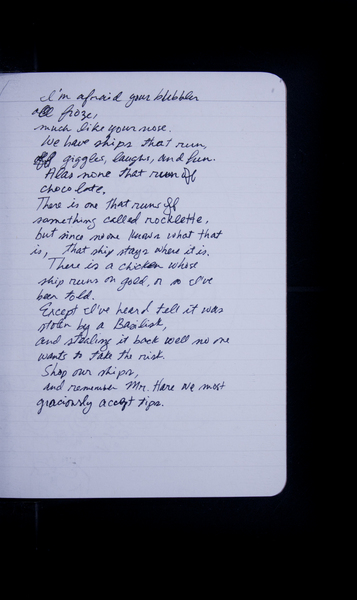 I'm afraid your blubbler
all froze,
much like your nose.
We have ships that run,
off giggles, laughs, and fun.
Alas none that run off
chocolate.
There is one that runs off
something called rocklette,
but since no one knows what that
is, that ship stays where it is.
There is a chicken whose
ship runs on gold, or so I've
been told.
Except I've heard tell it was
stolen by a Basilisk,
and stealing it back well no one
wants to take the risk.
Shop our ships,
and remember Mr. Hare we most
graciously accept tips.